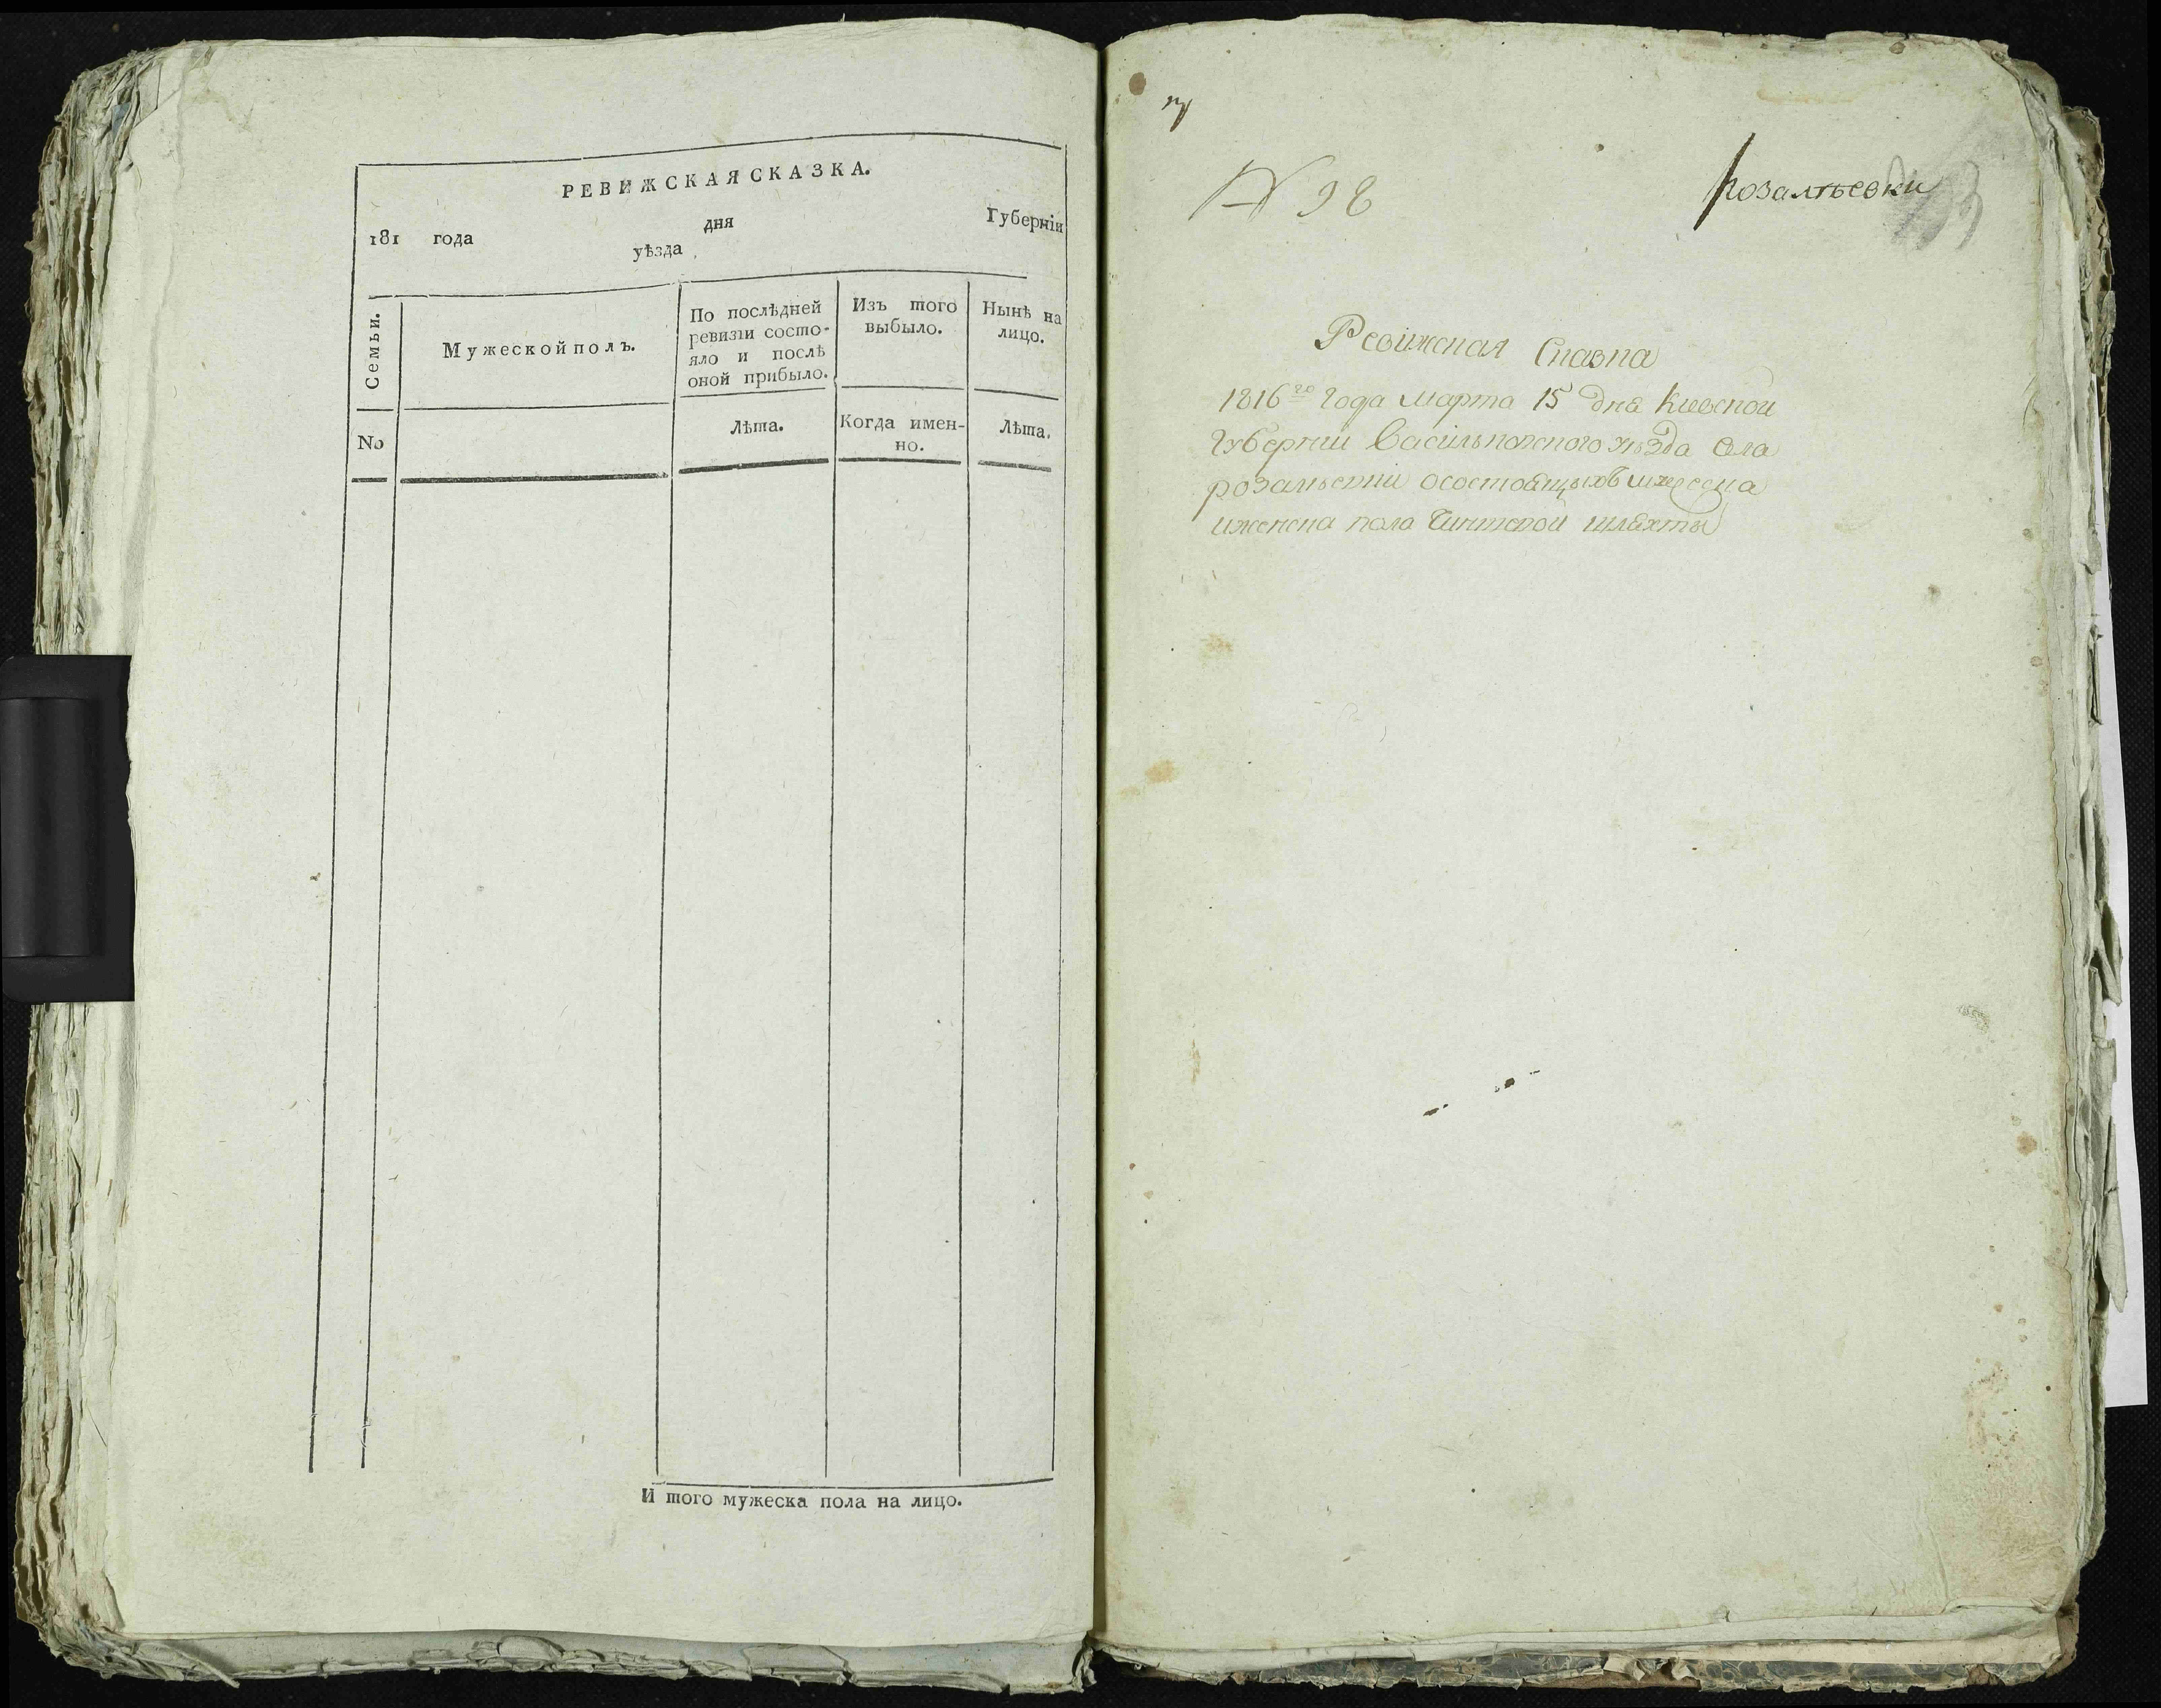 РЕВИЖСКАЯ СКАЗКА.
181 года дня Губерніи
уѣзда
Семьи.
Мужеской полъ.
По послѣдней
ревизіи состо-
яло и послѣ
оной прибыло.
Изъ того
выбыло.
Нынѣ на
лицо.
No
Лѣта.
Когда имен-
но.
Лѣта.
И того мужеска пола на лицо.
N 98
Розалѣевки
Ревижская Сказка
1816го Года Марта 15 дня Киевской
Губернии Васильковского уѣзда Села
розальевки осостоящыхъ мужеска
иженска пола Чиншовой шляхты